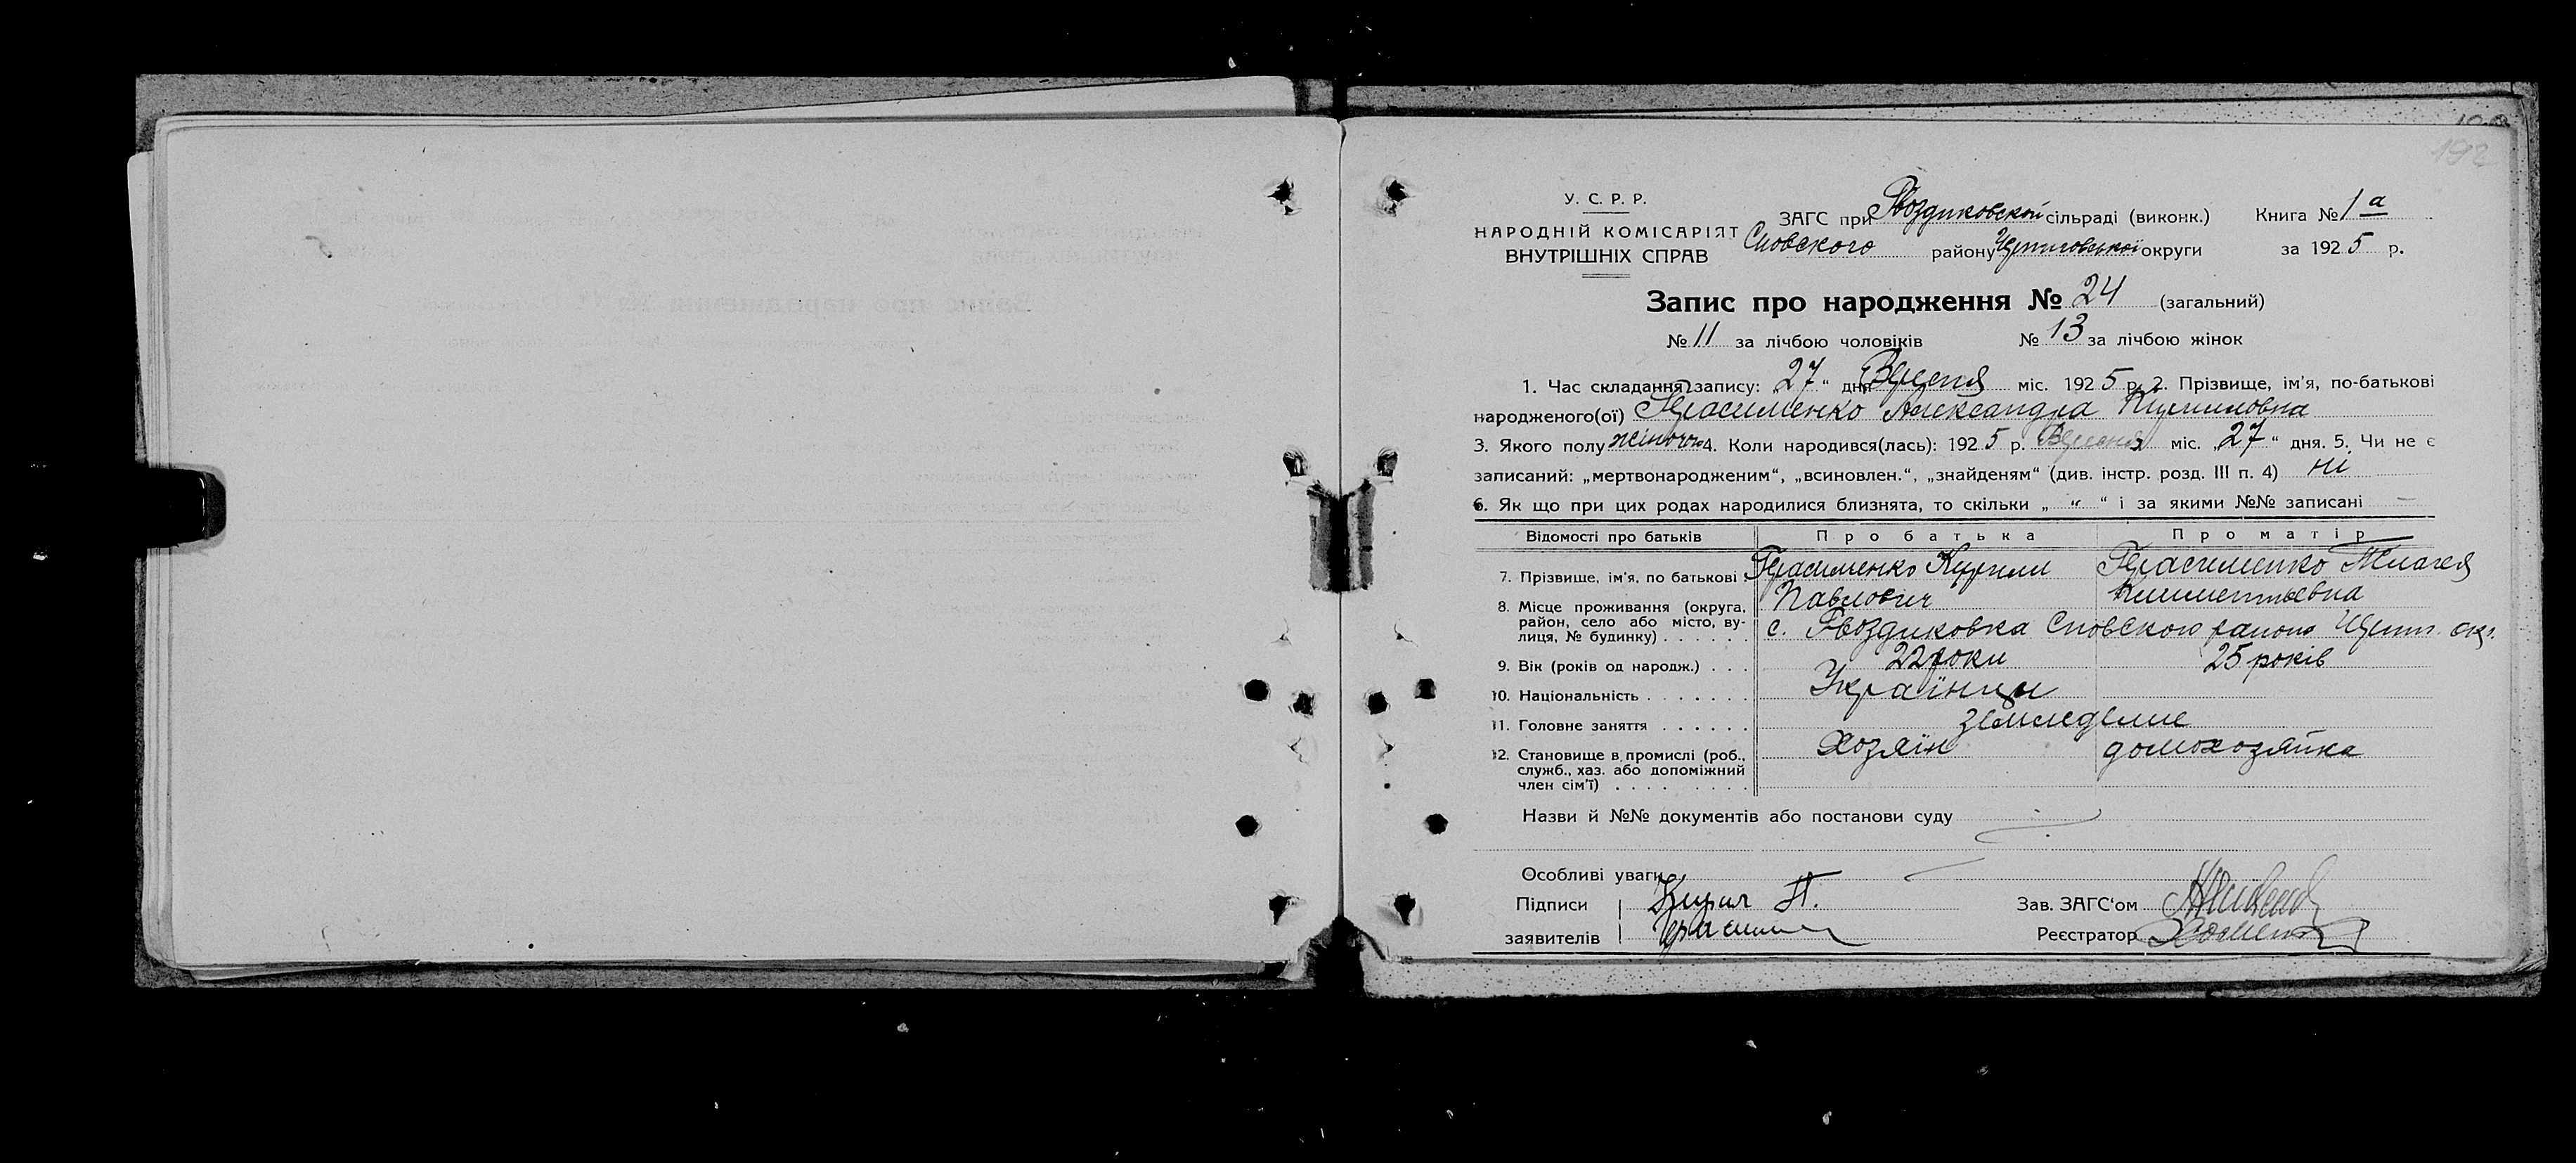 192
У. С. Р. Р.
НАРОДНІЙ КОМІСАРІЯТ
ВНУТРІШНІХ СПРАВ
ЗАГС при Гвоздиковской сільраді (виконк.) Книга № 1 а
Сновского району Черниговської округи за 1925 р.
Запис про народження № 24 (загальний)
№ 11 за лічбою чоловіків № 13 за лічбою жінок
1. Час складання запису: „27“ дня Вересня міс. 1925 р. 2. Прізвище, ім'я, по-батькові
народженого(ої) Герасименко Александра Кирилловна
3. Якого полу жіночого 4. Коли народився(лась): 1925 р. Вересня міс. „27“ дня. 5. Чи не є
записаний: „мертвонародженим“, „всиновлен.“, „знайденям“ (див. інстр. розд. III п. 4) ні
6. Як що при цих родах народилися близнята, то скільки „ “ “ і за якими №№ записані —
Відомості про батьків Про батька Про матір
7. Прізвище, ім'я, по батькові Герасименко Кирилл Герасименко
Павлович Климентьевна
8. Місце проживання (округа, район, село або місто, вулиця, № будинку) с. Гвоздиковка Сновского району Черниг. окр.
9. Вік (років од народж.) 22 роки 25 років
10. Національність Українци
11. Головне заняття земледелие
12. Становище в промислі (роб., служб., хаз. або допоміжний член сім'ї) Хозяїн домохозяйка
Назви й №№ документів або постанови суду
Особливі уваги
Підписи Кирил П. Зав. ЗАГС'ом
заявителів Реєстратор